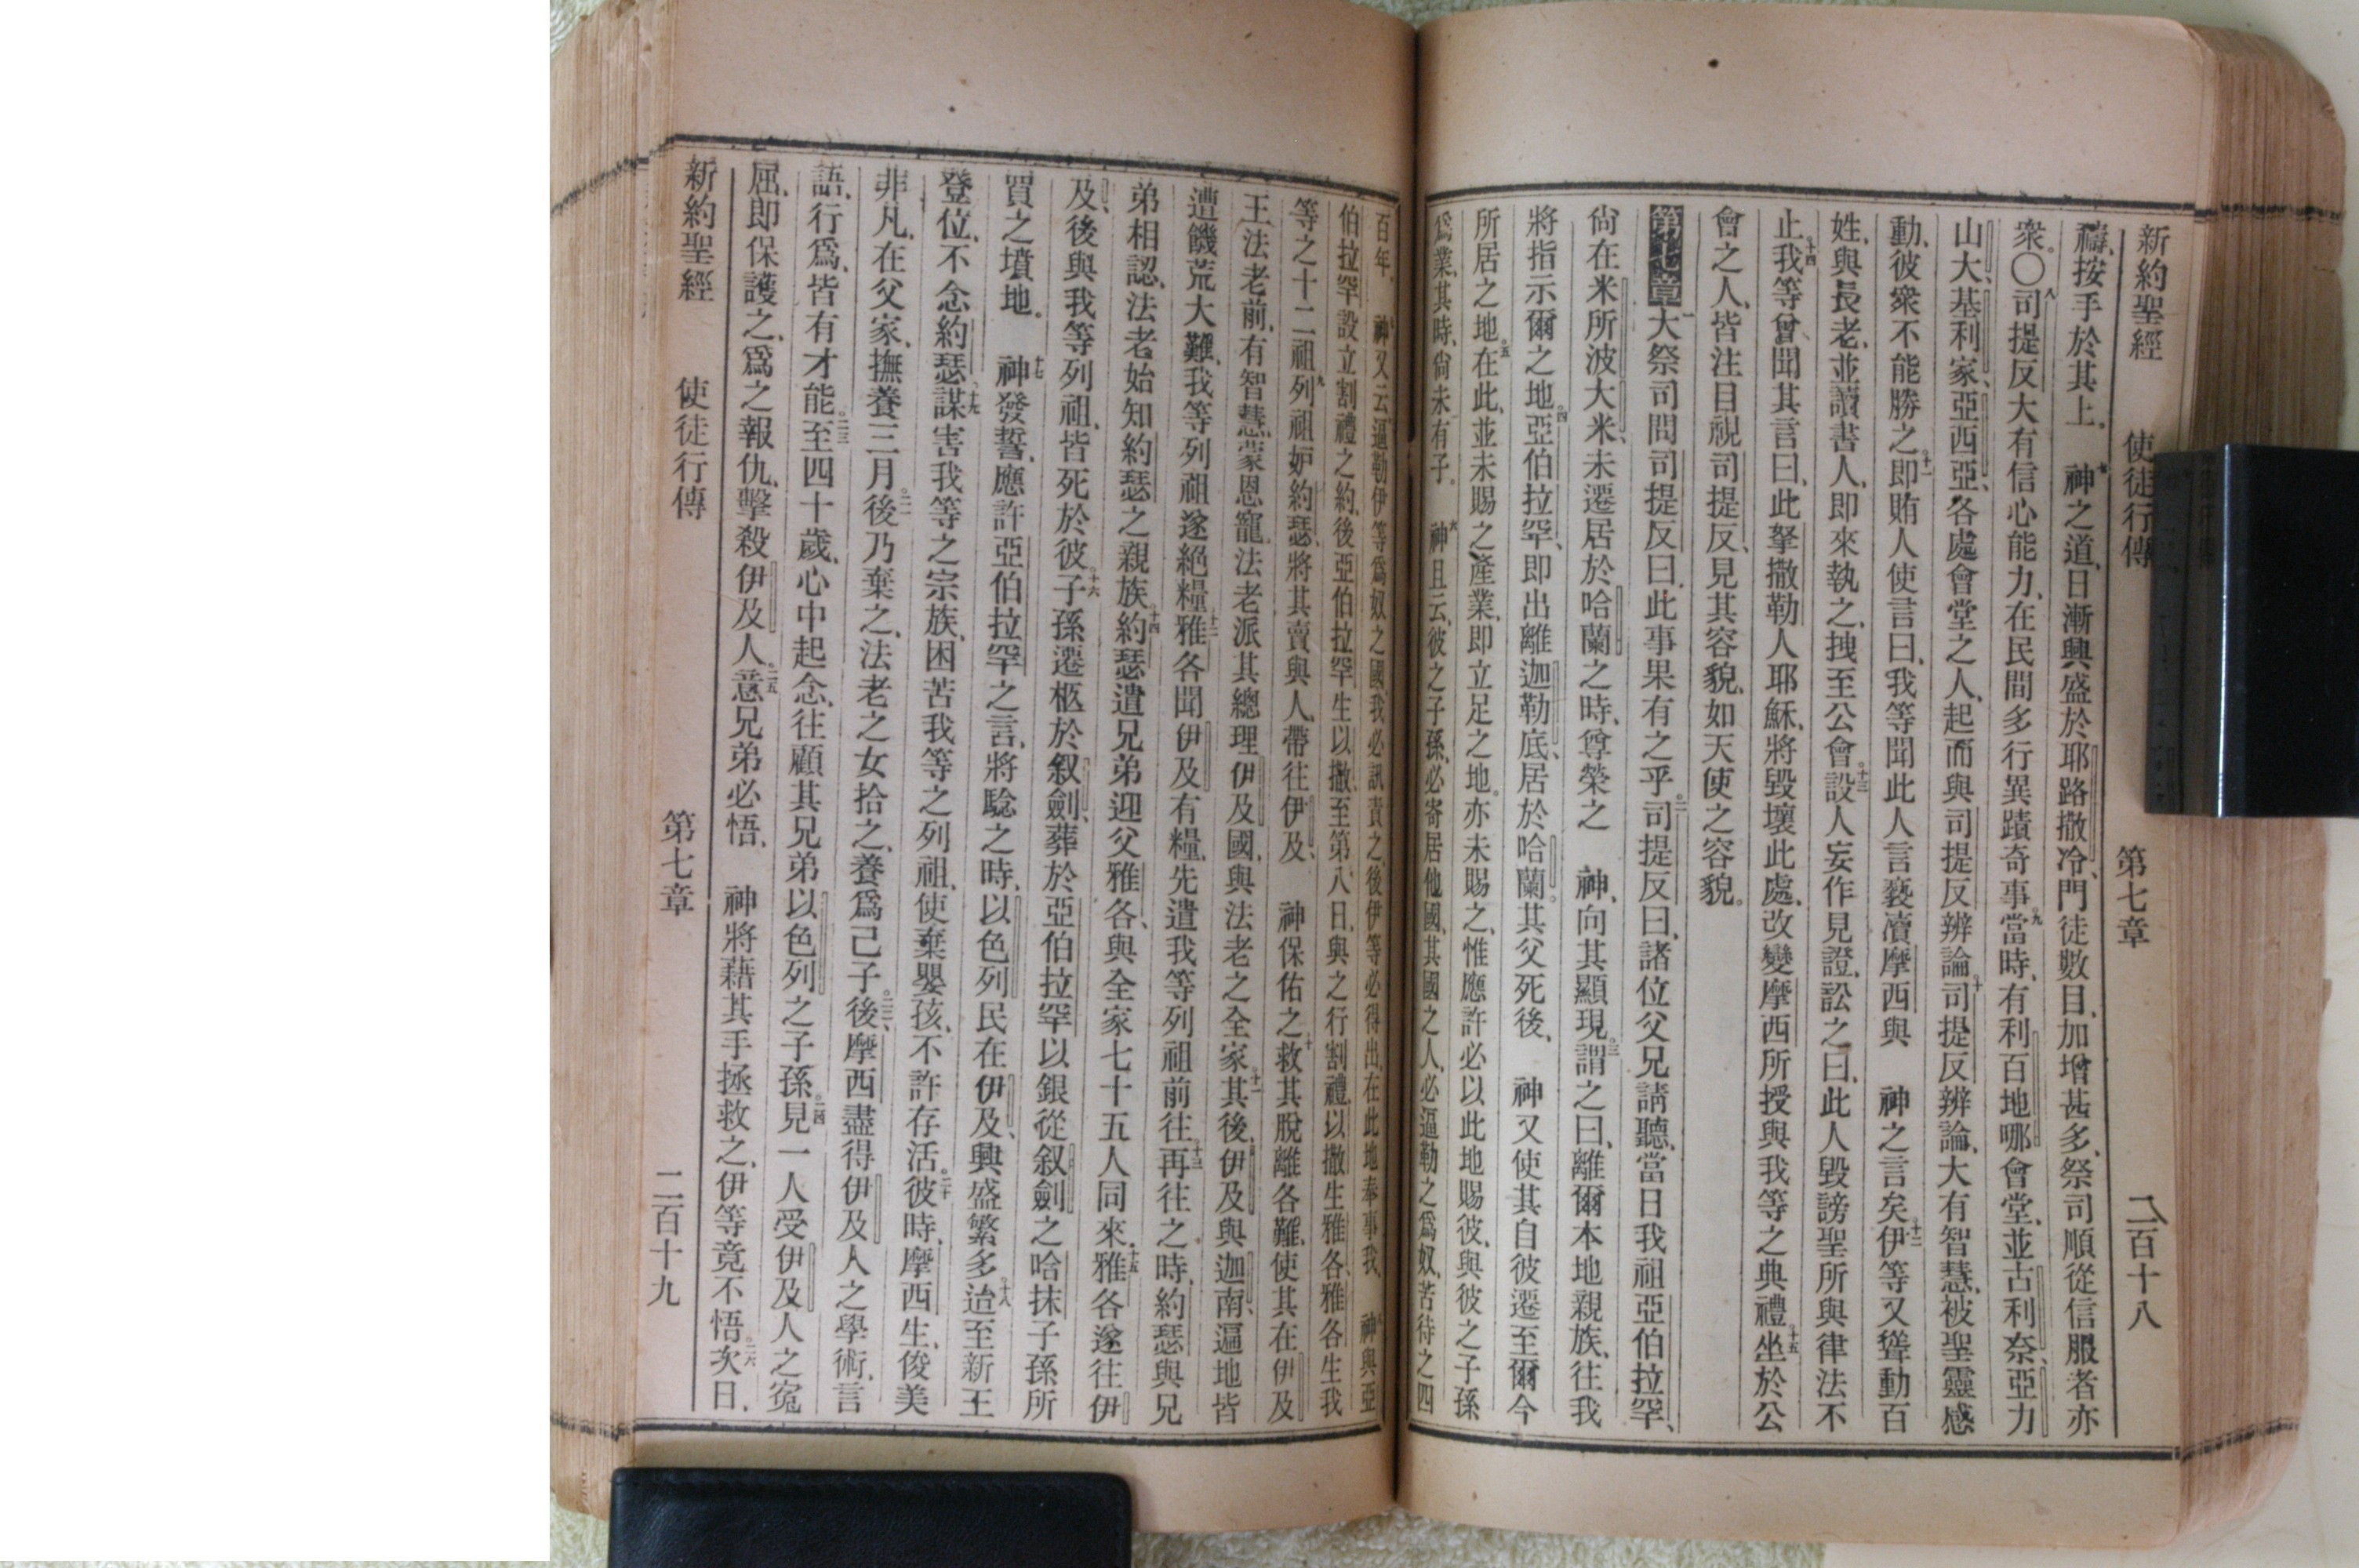 新約聖經 使徒行傳 第七章 二百十八
禱、按手於其上。 七神之道、日漸興盛於耶路撒冷、門徒數目、加增甚多、祭司順從信服者亦
衆。〇八司提反大有信心能力、在民間多行異蹟奇事。九當時、有利百地哪會堂、並古利奈、亞力
山大、基利家、亞西亞、各處會堂之人、起而與司提反辨論。十司提反辨論、大有智慧、被聖靈感
動、彼衆不能勝之。十一即賄人使言曰、我等聞此人言褻瀆摩西與 神之言矣。十二伊等又聳動百
姓、與長老、並讀書人、即來執之、拽至公會。十三設人妄作見證、訟之曰、此人毀謗聖所與律法不
止。十四我等曾聞其言曰、此拏撒勒人耶穌、將毀壞此處、改變摩西所授與我等之典禮。十五坐於公
會之人、皆注目視司提反、見其容貌、如天使之容貌。
第七章 一大祭司問司提反曰、此事果有之乎。二司提反曰、諸位父兄請聽、當日我祖亞伯拉罕、
尙在米所波大米、未遷居於哈蘭之時、尊榮之 神、向其顯現。三謂之曰、離爾本地親族、往我
將指示爾之地。四亞伯拉罕、即出離迦勒底、居於哈蘭。其父死後、 神又使其自彼遷至爾今
所居之地。五在此、並未賜之產業、即立足之地。亦未賜之、惟應許必以此地賜彼、與彼之子孫
爲業、其時、尙未有子。 六神且云、彼之子孫、必寄居他國、其國之人、必逼勒之爲奴、苦待之四
百年、 七神又云、逼勒伊等爲奴之國、我必訊責之、後伊等必得出、在此地奉事我、 八神與亞
伯拉罕設立割禮之約、後亞伯拉罕、生以撒、至第八日、與之行割禮、以撒生雅各、雅各生我
等之十二祖。九列祖妒約瑟、將其賣與人、帶往伊及、 神保佑之。十救其脫離各難、使其在伊及
王法老前、有智慧、蒙恩寵。法老派其總理伊及國、與法老之全家。十一其後、伊及與迦南、逼地皆
遭饑荒大難、我等列祖遂絕糧。十二雅各聞伊及有糧、先遣我等列祖前往。十三再往之時、約瑟與兄
弟相認、法老始知約瑟之親族。十四約瑟遣兄弟迎父雅各、與全家七十五人同來。十五雅各遂往伊
及、後與我等列祖、皆死於彼。十六子孫遷柩於叙劍、葬於亞伯拉罕以銀從叙劍之哈抹子孫所
買之墳地。 十七神發誓、應許亞伯拉罕之言、將騐之時、以色列民在伊及、興盛繁多。十八迨至新王
登位、不念約瑟。十九謀害我等之宗族、困苦我等之列祖、使棄嬰孩、不許存活。二十彼時、摩西生、俊美
非凡、在父家、撫養三月。二一後乃棄之、法老之女拾之、養爲己子。二二後、摩西盡得伊及人之學術、言
語、行爲、皆有才能。二三至四十歲、心中起念、往顧其兄弟以色列之子孫。二四見一人受伊及人之寃
屈、即保護之、爲之報仇、擊殺伊及人。二五意兄弟必悟、 神將藉其手拯救之、伊等竟不悟。二六次日、
新約聖經 使徒行傳 第七章 二百十九